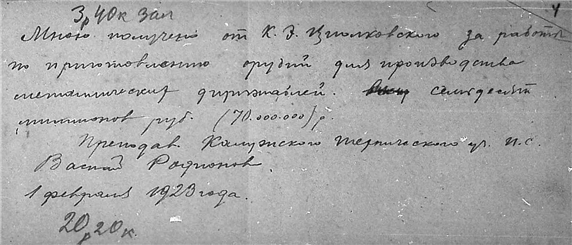 3р 40к зол
4
Мною получено от К. Э. Циолковского за работы
по приготовлению орудий для производства
металлических дирижаблей. семьдесят
миллионов руб. (70.000.000) р.
Преподав. Калужского технического уч. п.с.
Василий Родионов
1 февраля 1923 года.
20р 20к.